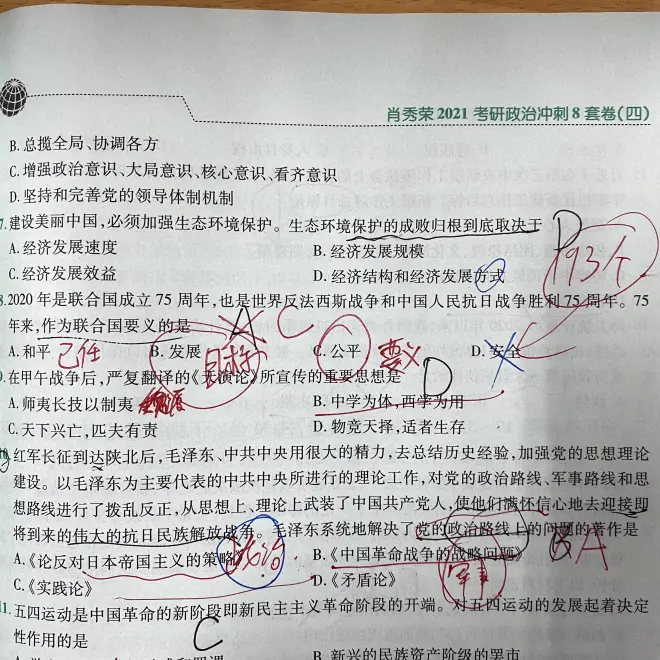 肖秀荣2021考研政治冲刺8套卷(四)
B. 总揽全局、协调各方
C. 增强政治意识、大局意识、核心意识、看齐意识
D. 坚持和完善党的领导体制机制
7. 建设美丽中国,必须加强生态环境保护。生态环境保护的成败归根到底取决于 D
A. 经济发展速度 B. 经济发展规模
C. 经济发展效益 D. 经济结构和经济发展方式
193个
8. 2020年是联合国成立75周年,也是世界反法西斯战争和中国人民抗日战争胜利75周年。75
年来,作为联合国要义的是 A C
A. 和平 己任 B. 发展 目标 C. 公平 要义 D. 安全
9. 在甲午战争后,严复翻译的《天演论》所宣传的重要思想是 D
A. 师夷长技以制夷 B. 中学为体,西学为用
C. 天下兴亡,匹夫有责 D. 物竞天择,适者生存
红军长征到达陕北后,毛泽东、中共中央用很大的精力,去总结历史经验,加强党的思想理论
建设。以毛泽东为主要代表的中共中央所进行的理论工作,对党的政治路线、军事路线和思
想路线进行了拨乱反正,从思想上、理论上武装了中国共产党人,使他们满怀信心地去迎接即
将到来的伟大的抗日民族解放战争。毛泽东系统地解决了党的政治路线上的问题的著作是 A
A. 《论反对日本帝国主义的策略》 政治 B. 《中国革命战争的战略问题》
C. 《实践论》 D. 《矛盾论》 军事
11. 五四运动是中国革命的新阶段即新民主主义革命阶段的开端。对五四运动的发展起着决定
性作用的是 C
B. 新兴的民族资产阶级的罢市